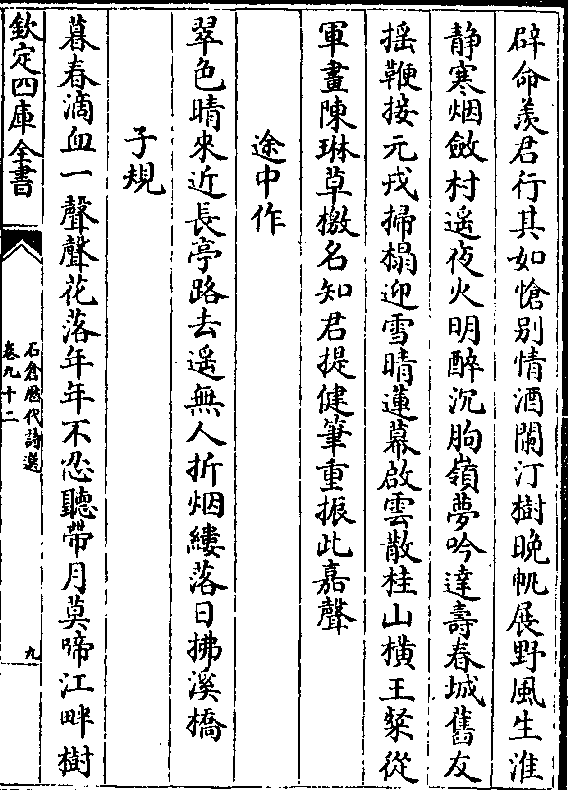 辟命羨君行其如愴别情酒闌汀樹晚帆展野風生淮
静寒烟斂村遥夜火明醉沉朐嶺夢吟達壽春城舊友
揺鞭接元戎掃榻迎雪晴蓮幕啟雲散桂山橫王粲從
軍畫陳琳草檄名知君提健筆重振此嘉聲
途中作
翠色晴來近長亭路去遥無人折烟縷落日拂溪橋
子規
暮春滴血一聲聲花落年年不忍聽帶月莫啼江畔樹
欽定四庫全書
石倉歴代詩選
卷九十二
九